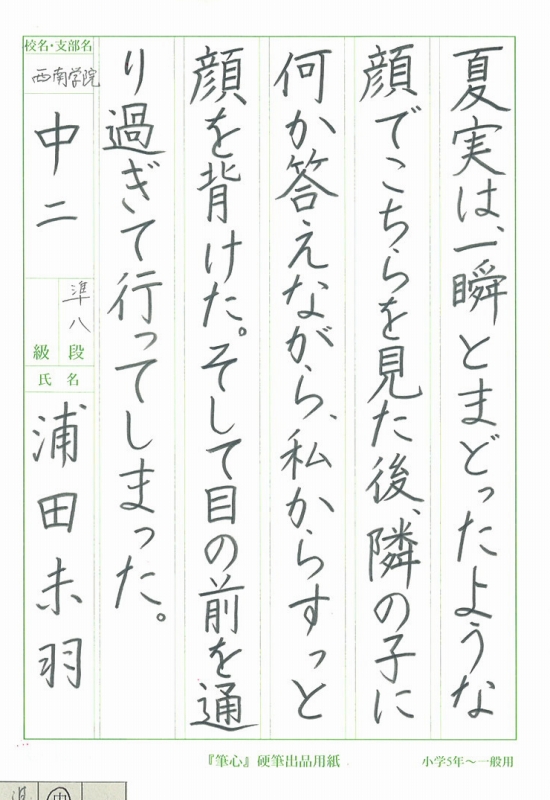 夏実は、一瞬とまどったような
顔でこちらを見た後、隣の子に
何か答えながら、私からすっと
顔を背けた。そして目の前を通
り過ぎて行ってしまった。
校名・支部名
西南学院
中二
準八
段
級
氏名
浦田未羽
『筆心』硬筆出品用紙
小学5年〜一般用